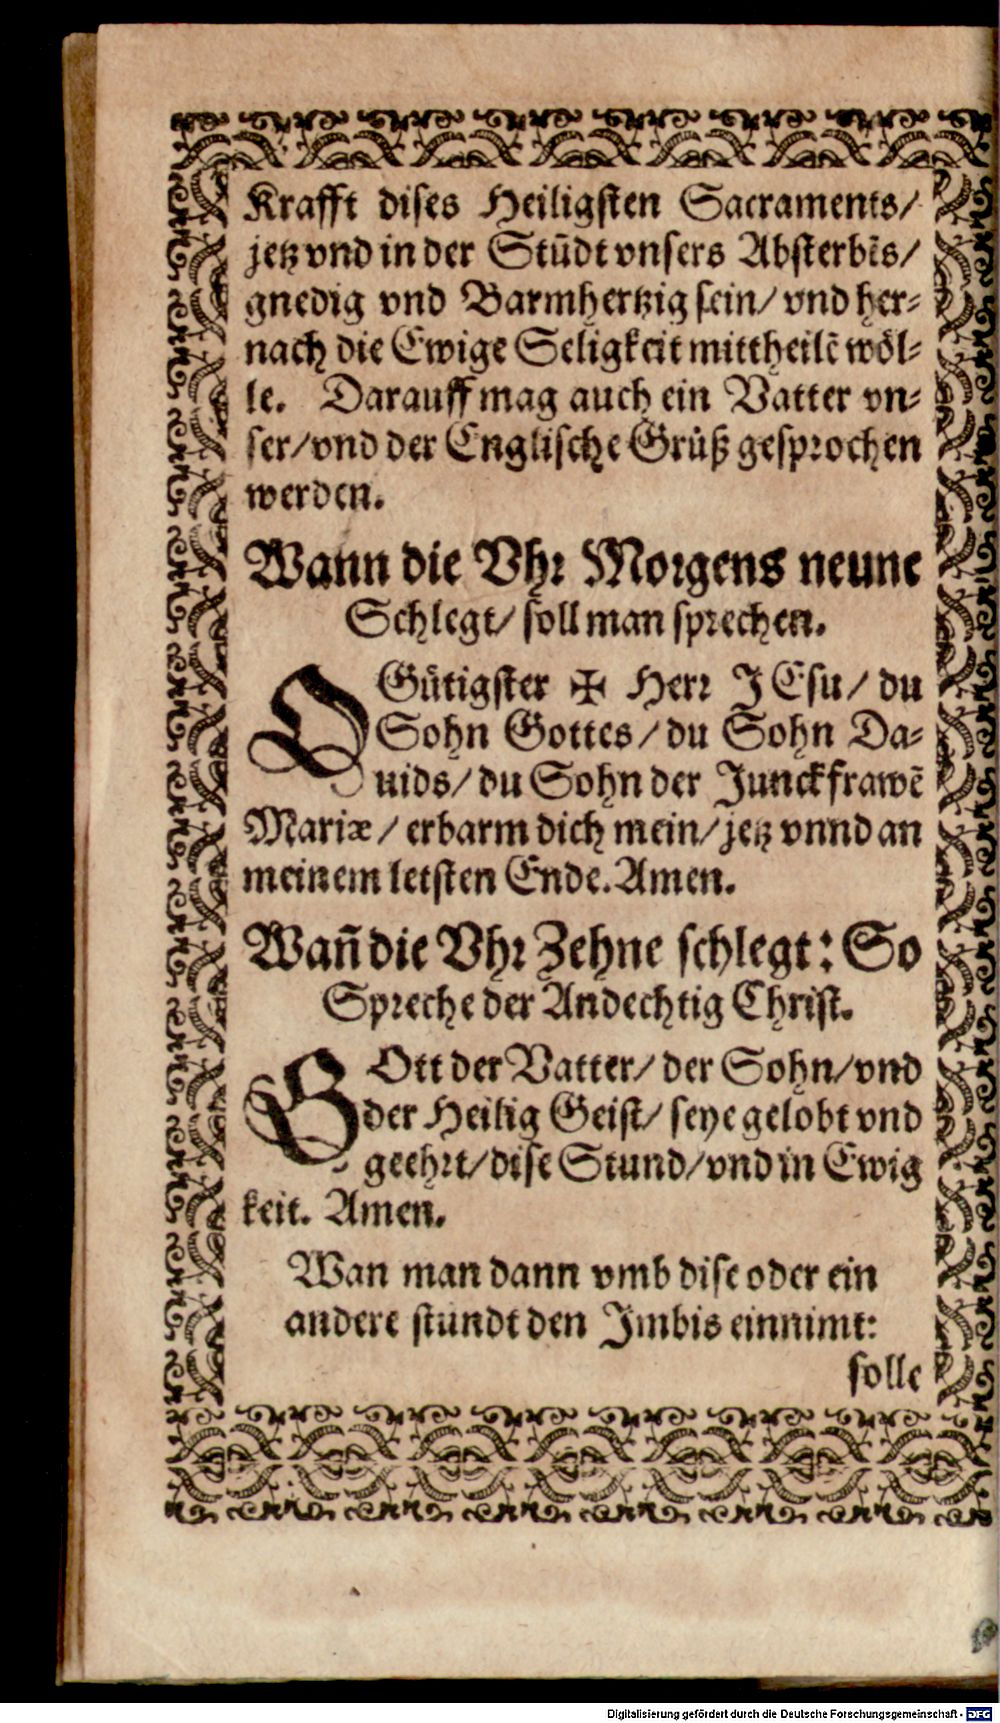 Krafft dises Heiligsten Sacraments/
jetz vnd in der Stūdt vnsers Absterbēs/
gnedig vnd Barmhertzig sein/ vnd her-
nach die Ewige Seligkeit mittheilē wöl-
le. Darauff mag auch ein Vatter vn-
ser/vnd der Englische Grůß gesprochen
werden.
Wann die Vhr Morgens neune
Schlegt/ soll man sprechen.
O Gütigster ✠ Herr JEsu/ du
Sohn Gottes/ du Sohn Da-
uids/ du Sohn der Junckfrawē
Mariæ/ erbarm dich mein/ jetz vnnd an
meinem letsten Ende. Amen.
Wañ die Vhr Zehne schlegt: So
Spreche der Andechtig Christ.
GOtt der Vatter/ der Sohn/vnd
der Heilig Geist/ seye gelobt vnd
geehrt/dise Stund/vnd in Ewig
keit. Amen.
Wan man dann vmb dise oder ein
andere stundt den Jmbis einnimt:
solle
Digitalisierung gefördert durch die Deutsche Forschungsgemeinschaft - DFG